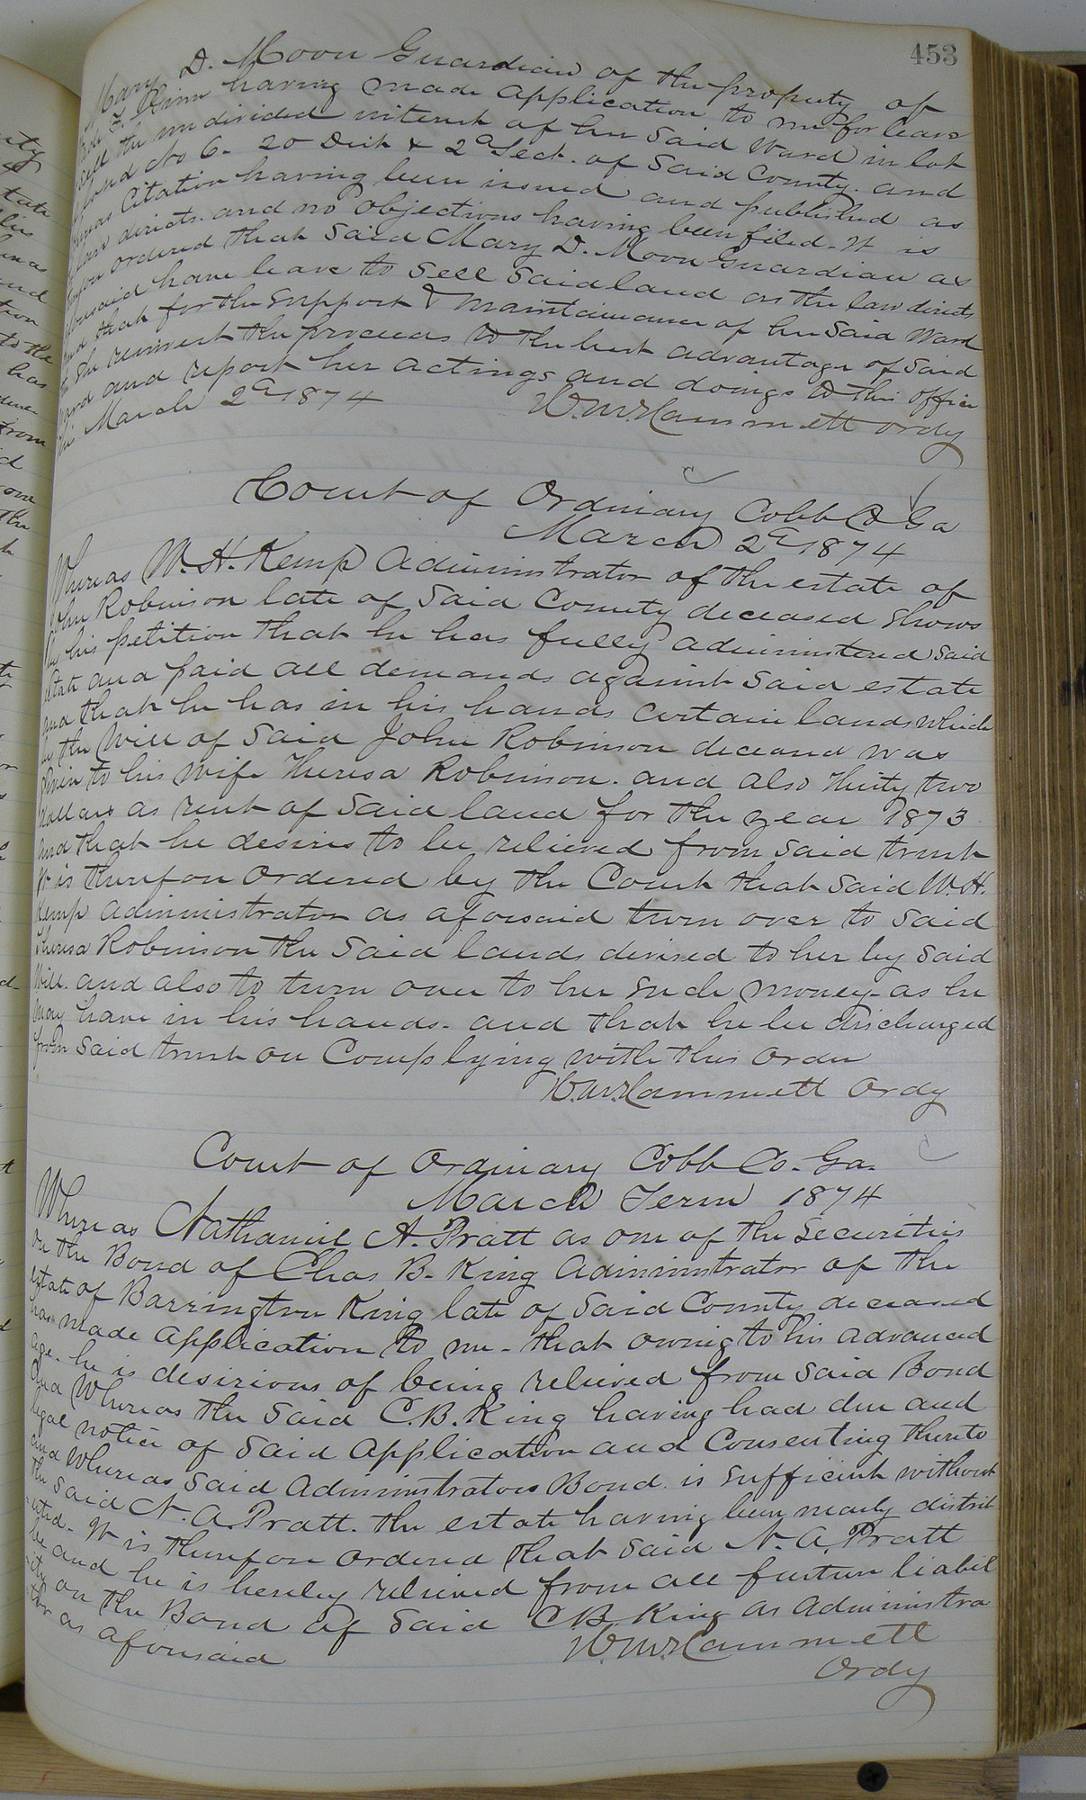 453
Mary D. Moon Guardian of the property of
F. having made application to me for leave
sell the undivided interest of her said Ward in lot
land No 6. 20 Dist & 2d Sect. of Said County. and
Citation having been issued and published as
law directs. and no objections having been filed. It is
ordered that Said Mary D. Moon Guardian as
aforesaid have leave to Sell Said land as the law directs
and that for the Support & maintainance of her Said Ward
She reinvest the proceeds to the best advantage of Said
Ward and report her actings and doings to this office
this March 2d 1874
W. M. Hammett Ordy
Court of Ordinary Cobb Co Ga
March 2d 1874
Whereas W. H. Kemp Administrator of the estate of
John Robinson late of Said County deceased Shows
by his petition that he has fully administered Said
estate and paid all demands against Said estate
and that he has in his hands certain lands which
by the Will of Said John Robinson deceased was
given to his Wife Theresa Robinson. and also thirty two
dollars as rent of Said land for the year 1873
and that he desires to be relieved from Said trust
It is therefore ordered by the Court that Said W. H.
Kemp Administrator as aforesaid turn over to Said
Theresa Robinson the Said lands devised to her by Said
Will. and also to turn over to her Such money as he
may have in his hands. and that he be discharged
from Said trust on Complying with this Order
W. M. Hammett Ordy
Court of Ordinary Cobb Co. Ga.
March Term 1874
Whereas Nathaniel A. Pratt as one of the Securities
on the Bond of Chas B. King Administrator of the
estate of Barrington King late of Said County deceased
has made application to me - that owing to his advanced
age. he is desirious of being relieved from Said Bond
And Whereas the Said C. B. King having had due and
legal notice of Said Application and Consenting thereto
and Whereas Said Administrators Bond is Sufficient without
the Said N. A. Pratt. the estate having been nearly distrib
uted. It is therefore ordered that Said N. A. Pratt
be and he is hereby relieved from all future liabil
ity on the Bond of Said C. B. King as Administra
tor as aforesaid
W. M. Hammett
Ordy